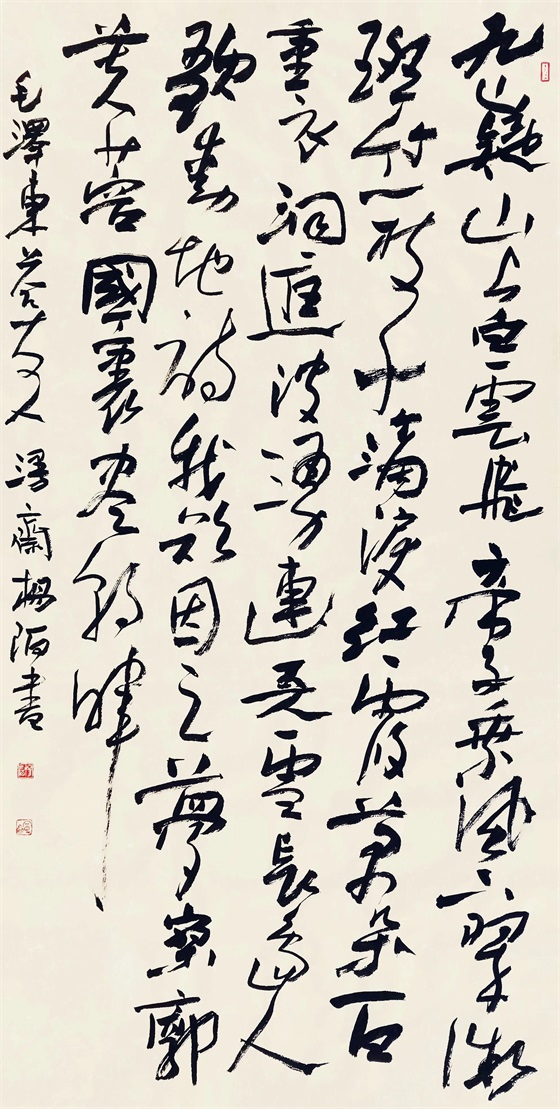 九嶷山上白雲飛帝子乘風下翠微
斑竹一枝千滴淚紅霞萬朵百
重衣洞庭波湧連天雪長島人
歌動地詩我欲因之夢寥廓
芙蓉國裏尽朝暉
毛澤東答友人 漫齋陌書